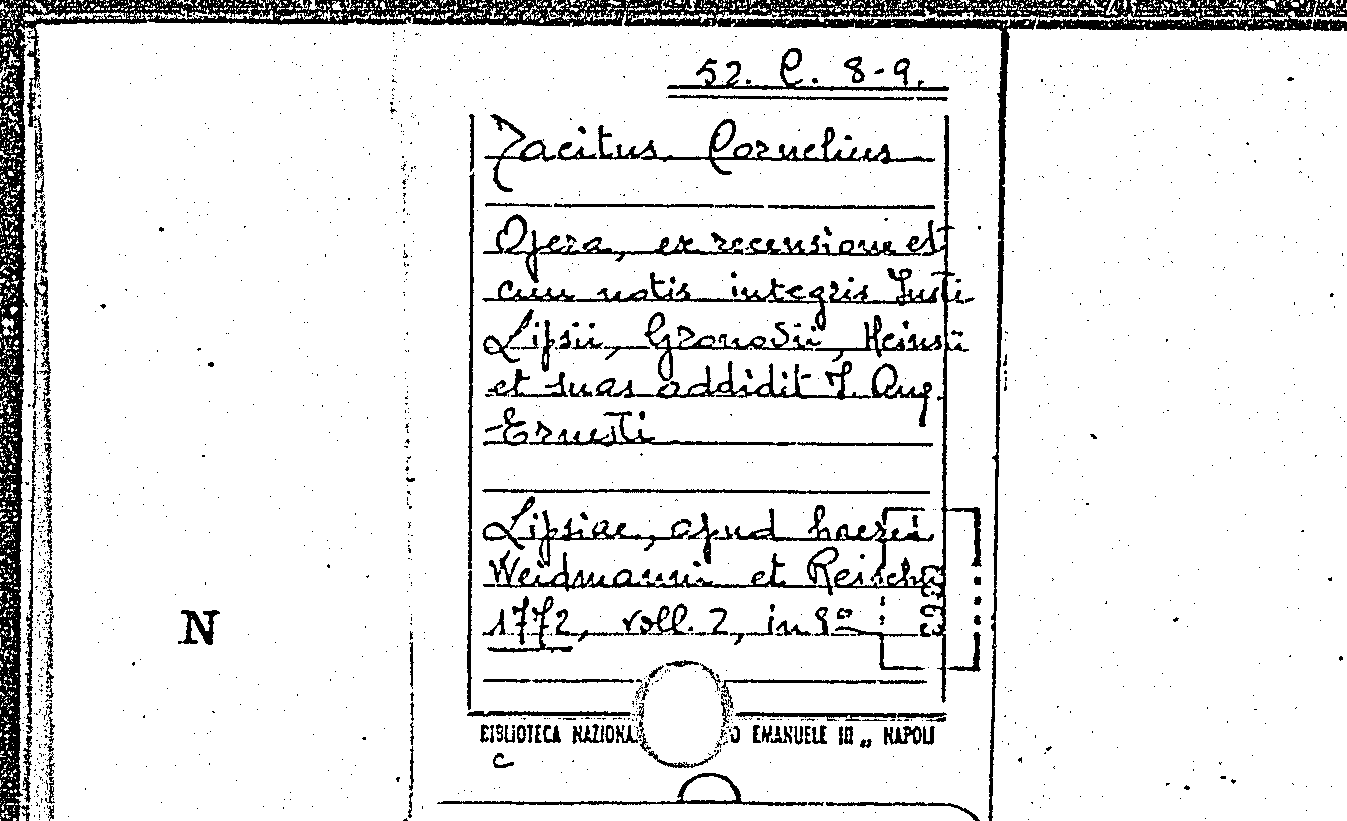 52. C. 8-9.
Tacitus Cornelius
Opera, ex recensione et
cum notis integris Justi
Lipsii, Gronovii, Heinsii
et suas addidit J. Aug.
Ernesti
Lipsiae, apud haered.
Weidmanni et Reichi
1772, voll. 2, in 8º
N
BIBLIOTECA NAZIONA O EMANUELE III „ NAPOLI
C